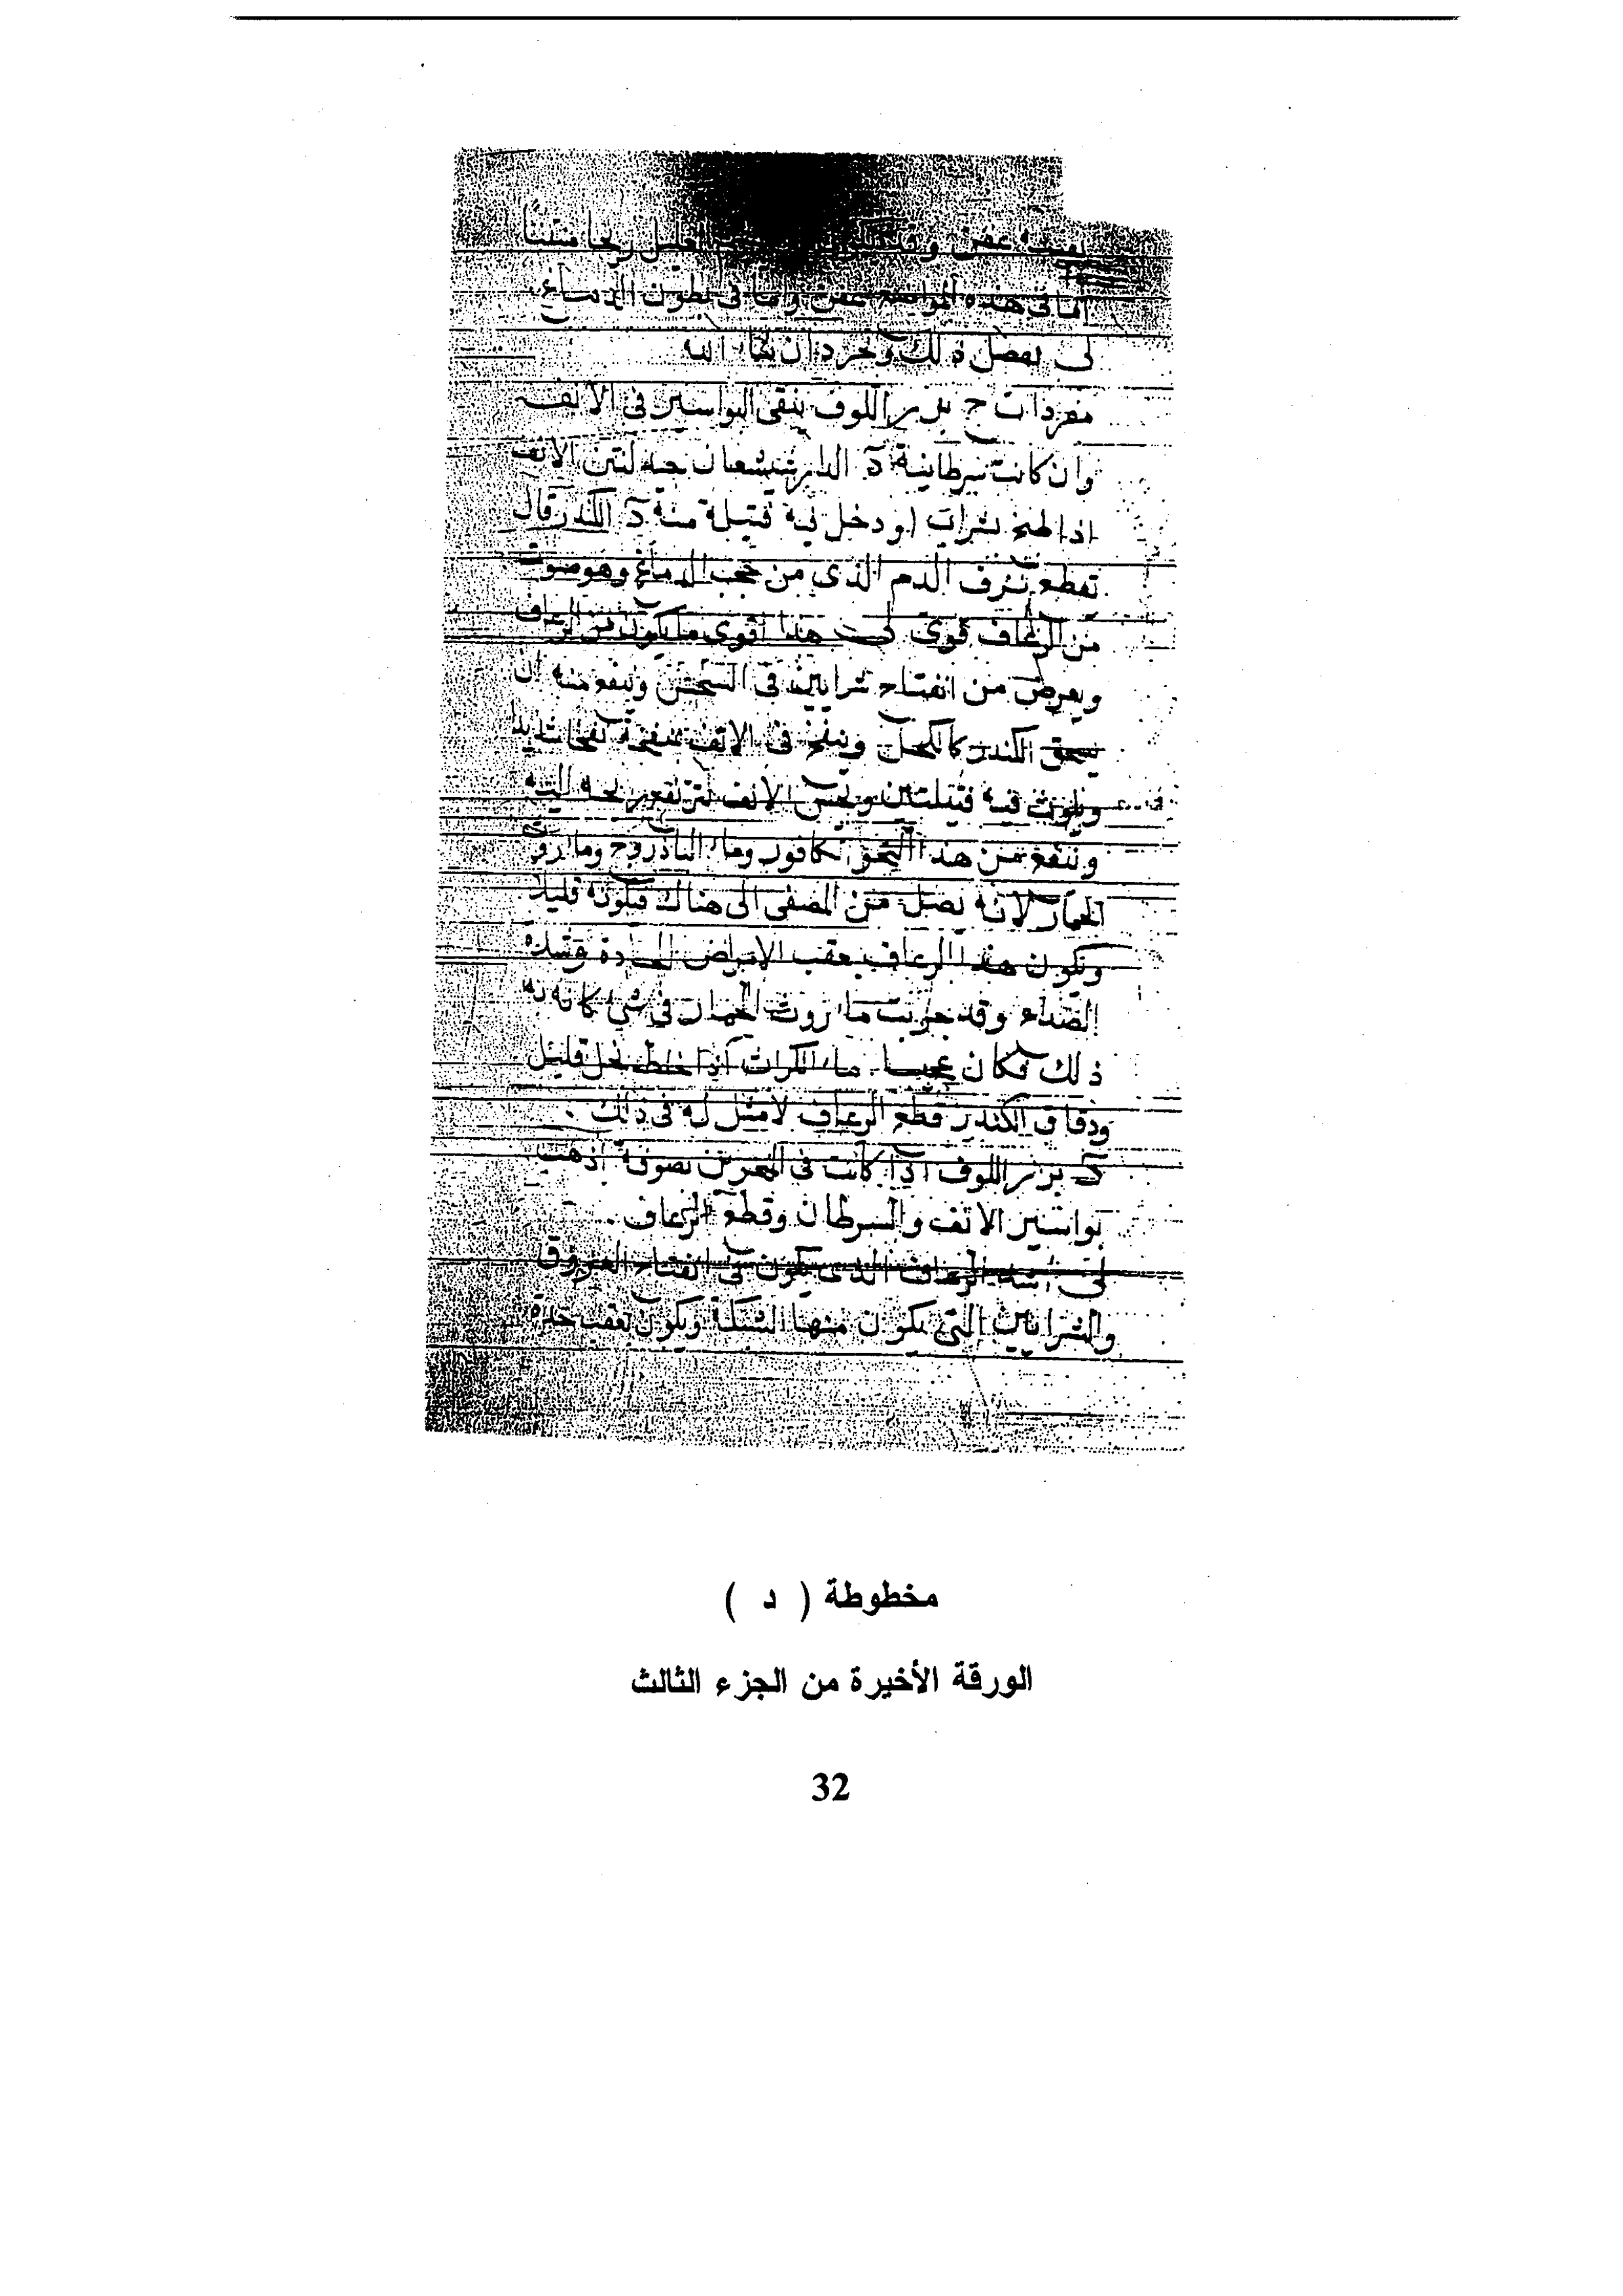 عفن وقد ريحا منتنا
اما فى هذه المواضع عفن واما فى بطون الدماغ
لى يفصل ذلك ويحرر ان شاء الله
مفردات ج بزر اللوف ينقى البواسير فى الانف
وان كانت سرطانية د الدارشيشعان جيد لنتن الانف
اذا طبخ بشراب ودخل فيه فتيلة منه د الكندر قال
تقطع نزف الدم الذى من حجب الدماغ وهو صوت
من الرعاف قوى لى هذا اقوى ما يكون من الرعاف
ويعرض من انفتاح شرايين فى وينفع منه ان
يسحق الكندر كالكحل وينفخ فى الانف بمنفخة نفخا شديدا
ويلوث فيه فتيلتين ويحس الانف اليه
وينتفع من هذا الكافور وماء الباذروج وما روث
الحمار لانه يصل من المصفى الى هناك فيكويه قليلا
ويكون هذا الرعاف بعقب الامراض الحادة وشدة
الصداع وقد جربت ماء روث الحمار فى شى كانه به
ذلك فكان عجيبا ماء الكراث اذا خلط بخل قليل
ودقاق الكندر قطع الرعاف لا مثل له فى ذلك .
د بزر اللوف اذا كانت فى المنخرين بصوفة اذهب
بواسير الانف والسرطان وقطع الرعاف .
لى اشد الرعاف الذى يكون فى انفتاح العروق
والشرايين التى يكون منها الشبكة ويكون بعقب حدة
مخطوطة ( د )
الورقة الأخيرة من الجزء الثالث
32